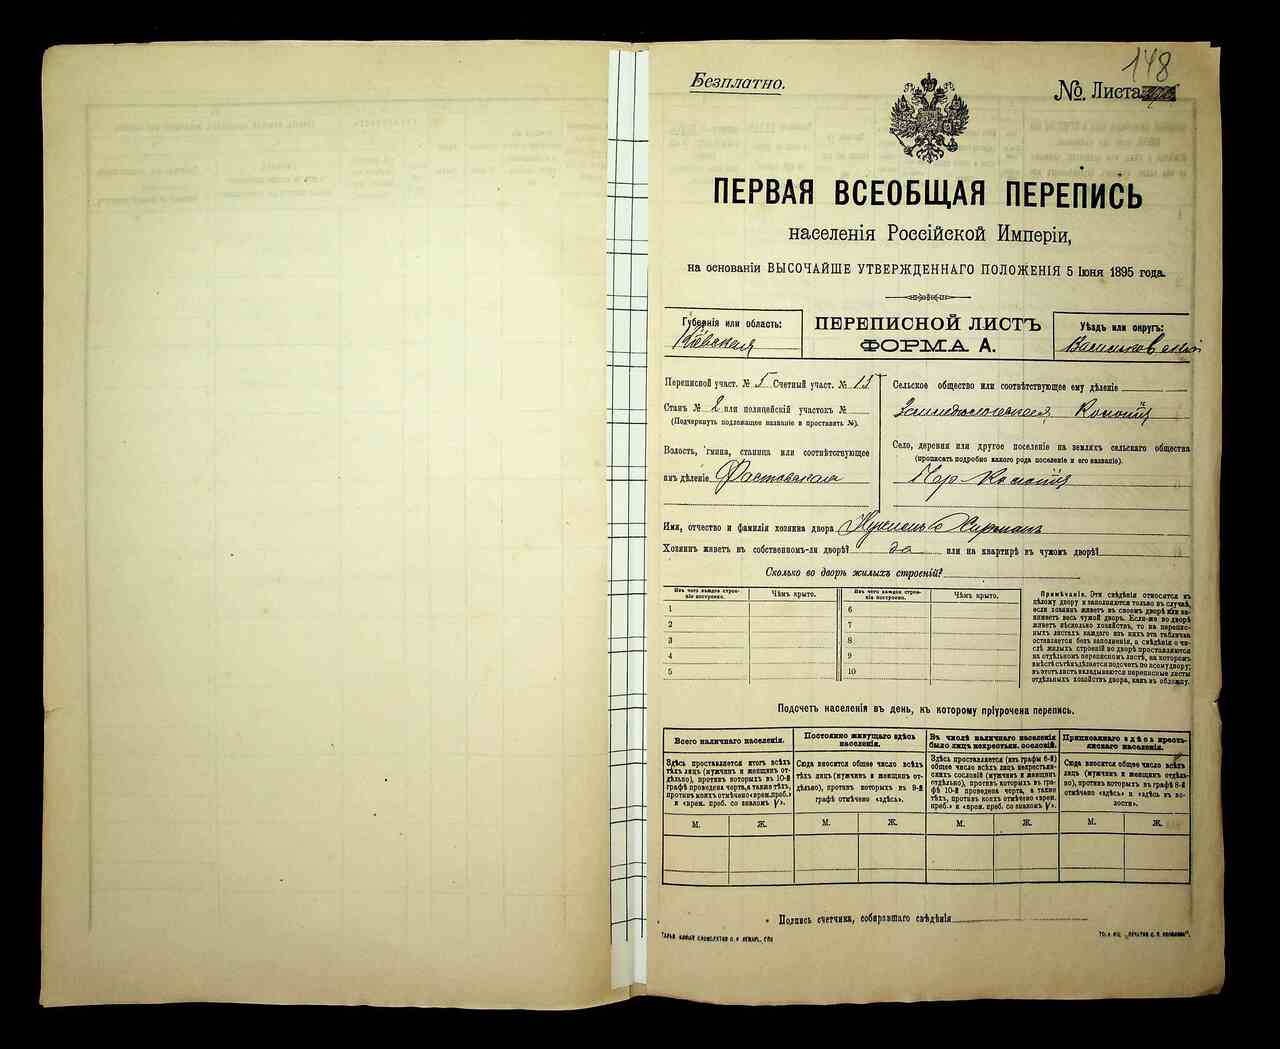 148
Безплатно.
№. Листа
ПЕРВАЯ ВСЕОБЩАЯ ПЕРЕПИСЬ
населенія Россійской Имперіи,
на основаніи ВЫСОЧАЙШЕ УТВЕРЖДЕННАГО ПОЛОЖЕНІЯ 5 Іюня 1895 года.
Губернія или область:
Кіевская
ПЕРЕПИСНОЙ ЛИСТЪ
ФОРМА А.
Уѣздъ или округъ:
Васильковскій
Переписной участ. № 5 Счетный участ. № 13
Станъ № 2 или полицейскій участокъ №
(Подчеркнуть подлежащее названіе и проставить №).
Волость, гмина, станица или соотвѣтствующее
имъ дѣленіе Фастовская
Сельское общество или соотвѣтствующее ему дѣленіе
Колонія
Село, деревня или другое поселеніе на земляхъ сельскаго общества
(прописать подробно какого рода поселеніе и его названіе).
Колонія
Имя, отчество и фамилія хозяина двора
Хозяинъ живетъ въ собственномъ-ли дворѣ? да или на квартирѣ въ чужомъ дворѣ?
Сколько во дворѣ жилыхъ строеній?
Изъ чего каждое строеніе построено.
Чѣмъ крыто.
Изъ чего каждое строеніе построено.
Чѣмъ крыто.
1 6
2 7
3 8
4 9
5 10
Примѣчаніе. Эти свѣдѣнія относятся къ
цѣлому двору и заполняются только въ случаѣ,
если хозяинъ живетъ въ своемъ дворѣ или занимаетъ весь чужой дворъ. Если-же во дворѣ
живетъ нѣсколько хозяйствъ, то на переписныхъ листахъ каждаго изъ нихъ эта табличка
оставляется безъ заполненія, а свѣдѣнія о числѣ жилыхъ строеній во дворѣ проставляются
на отдѣльномъ переписномъ листѣ, на которомъ
вмѣстѣ съ тѣмъ дѣлается подсчетъ по всему двору;
въ этотъ листъ вкладываются переписные листы
отдѣльныхъ хозяйствъ двора, какъ въ обложку.
Подсчетъ населенія въ день, къ которому пріурочена перепись.
Всего наличнаго населенія.
Постоянно живущаго здѣсь населенія.
Въ числѣ наличнаго населенія было лицъ некрестьян. сословій.
Приписаннаго здѣсь крестьянскаго населенія.
Здѣсь проставляется итогъ всѣхъ
тѣхъ лицъ (мужчинъ и женщинъ отдѣльно), противъ которыхъ въ 10-й
графѣ проведена черта, а также тѣхъ,
противъ коихъ отмѣчено «врем. преб.»
и «врем. преб. со знакомъ V».
Сюда вносится общее число всѣхъ
тѣхъ лицъ (мужчинъ и женщинъ отдѣльно), противъ которыхъ въ 9-й
графѣ отмѣчено «здѣсь».
Здѣсь проставляется (изъ графы 6-й)
общее число всѣхъ лицъ некрестьянскихъ сословій (мужчинъ и женщинъ
отдѣльно), противъ которыхъ въ графѣ 10-й проведена черта, а также
тѣхъ, противъ коихъ отмѣчено «врем.
преб.» и «врем. преб. со знакомъ V».
Сюда вносится общее число всѣхъ
лицъ (мужчинъ и женщинъ отдѣльно), противъ которыхъ въ графѣ 8-й
отмѣчено «здѣсь» и «здѣсь въ волости».
М. Ж. М. Ж. М. Ж. М. Ж.
Подпись счетчика, собиравшаго свѣдѣнія